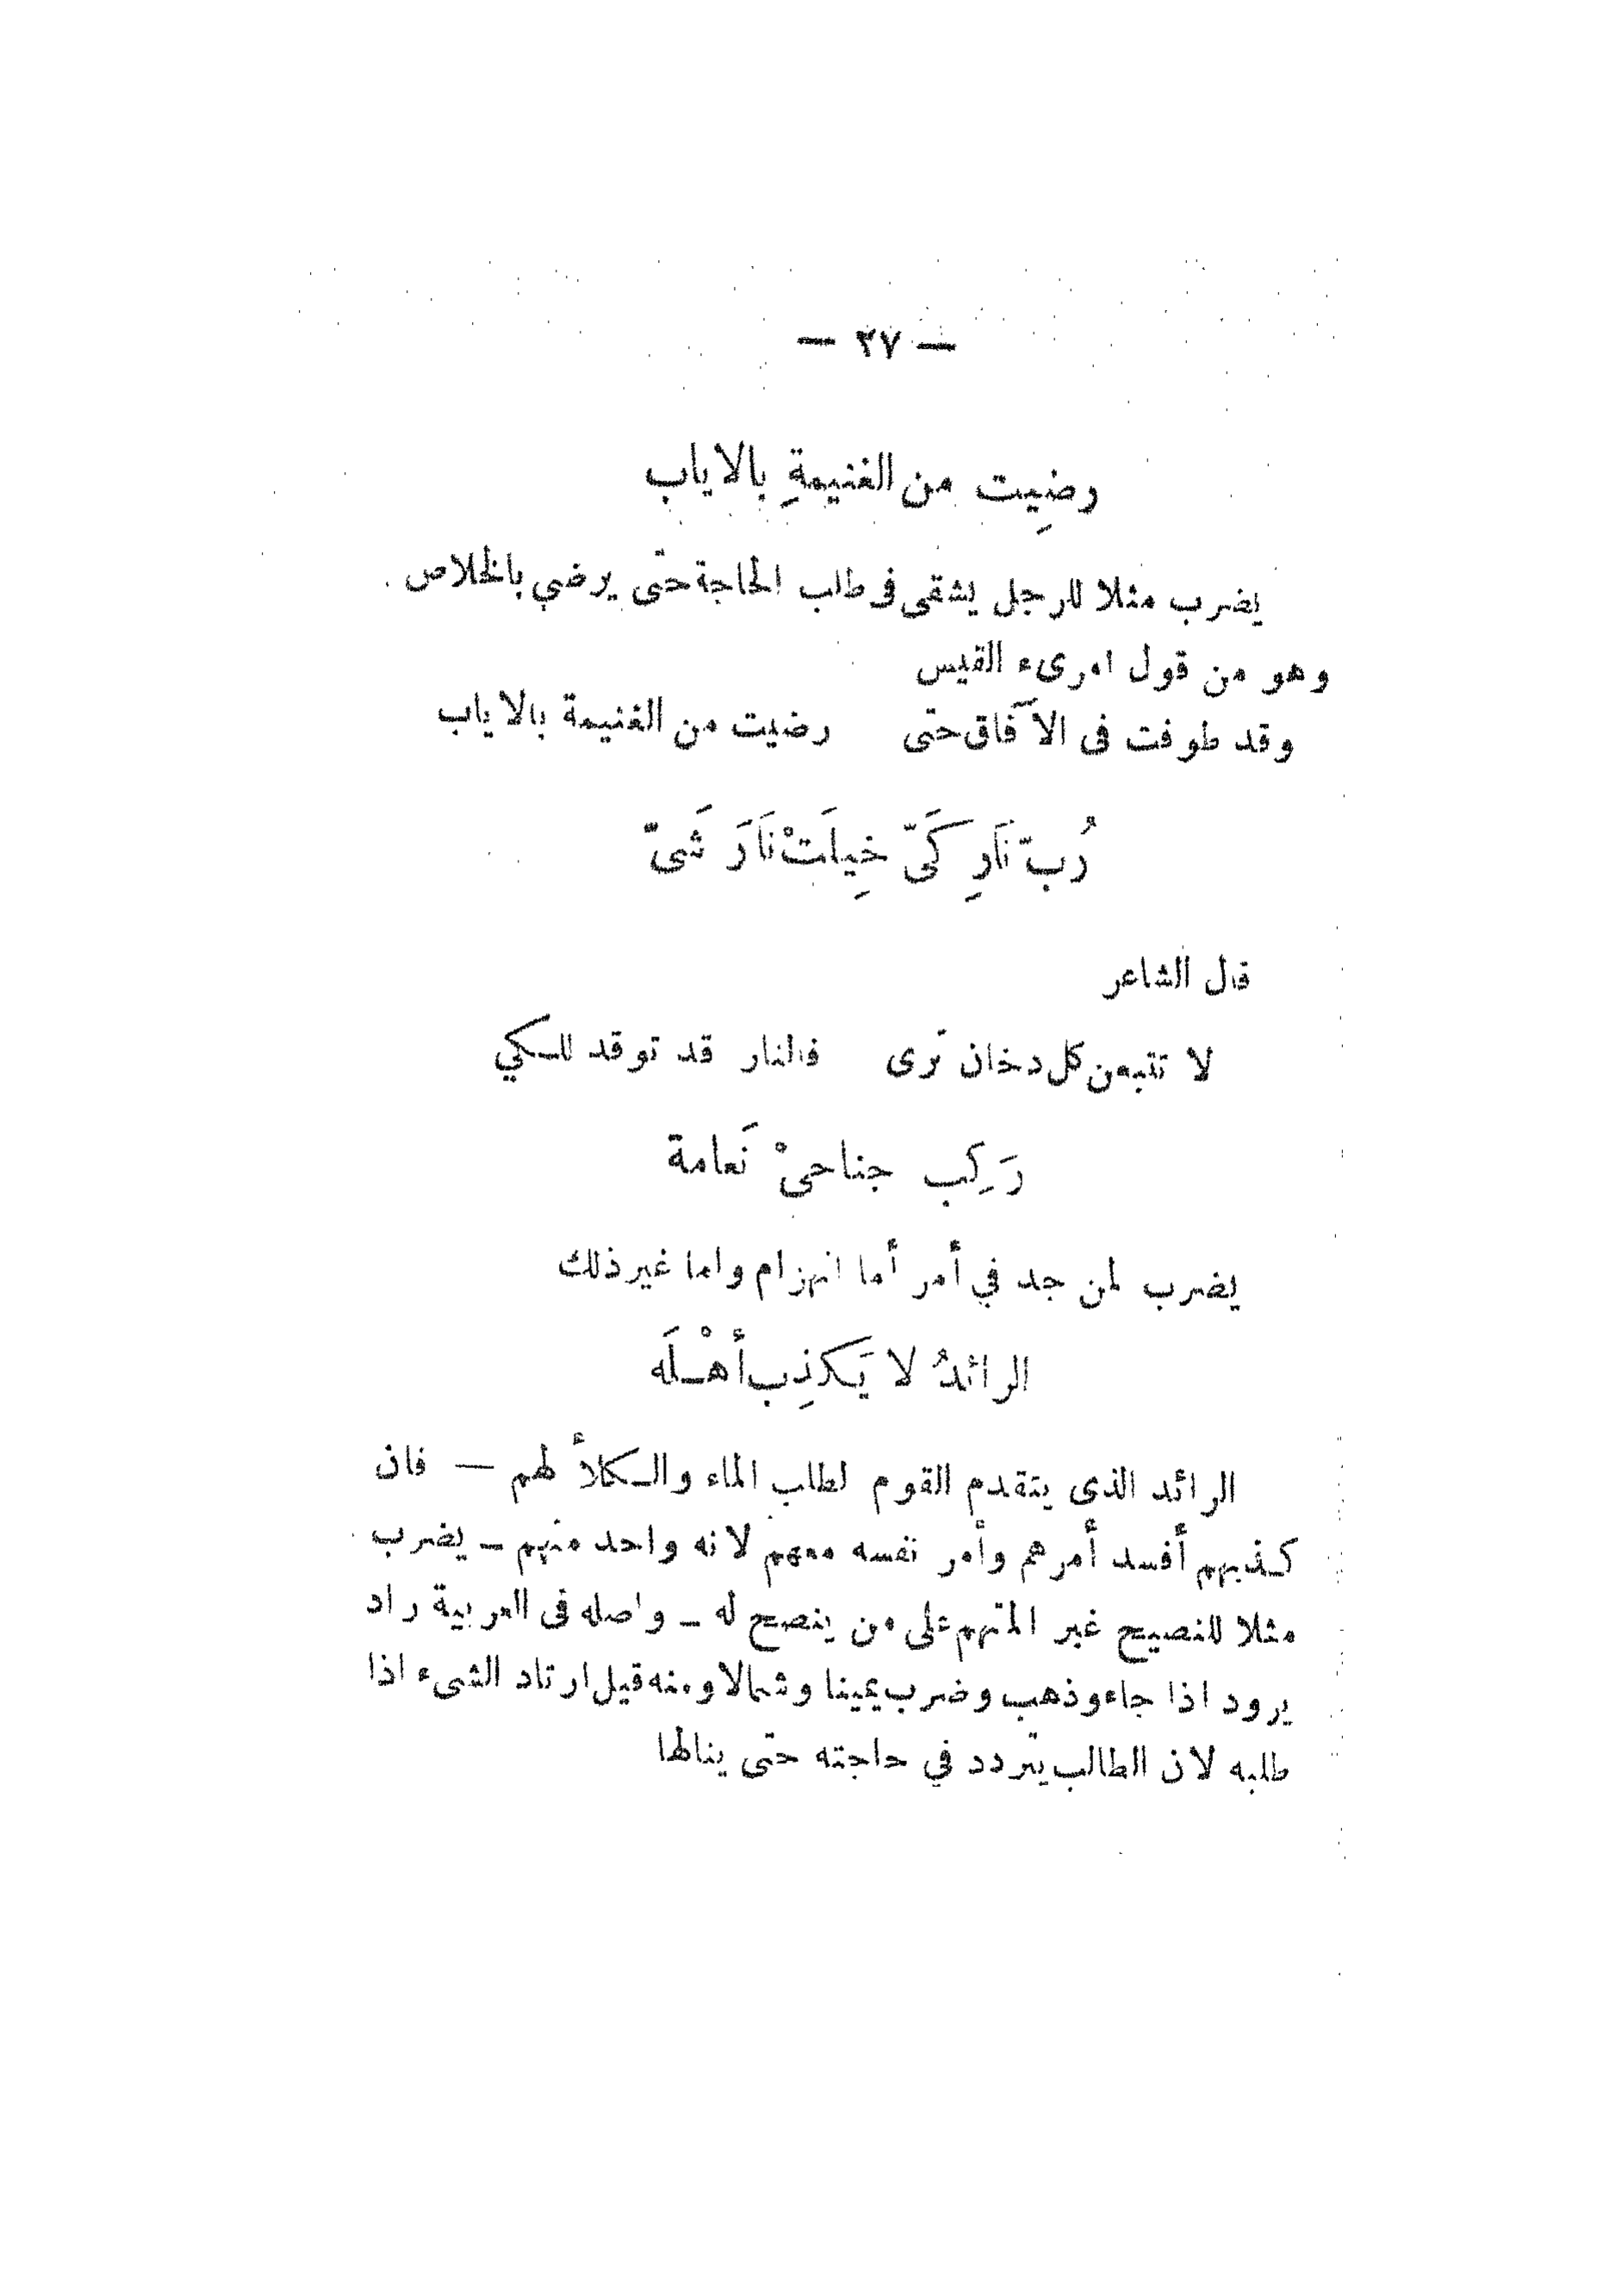 — ٣٧ —
رضِيت من الغنيمةِ بالاياب
يضرب مثلا للرجل يشقى فى طلب الحاجة حتى يرضي بالخلاص .
وهو من قول امرىء القيس
وقد طوفت فى الآفاق حتى رضيت من الغنيمة بالاياب
رُبّ نَارِ كَىّ خِيلَتْ نَارَ شَىّ
قال الشاعر
لا تتبعن كل دخان ترى فالنار قد توقد للكي
رَكِب جناحىْ نَعامة
يضرب لمن جد في أمر أما انهزام واما غير ذلك
الرائدُ لا يَكذِب أهْلَه
الرائد الذى يتقدم القوم لطلب الماء والكلأ لهم — فان
كذبهم أفسد أمرهم وأمر نفسه معهم لانه واحد منهم – يضرب
مثلا للنصيح غير المتهم على من ينصح له – واصله فى العربية راد
يرود اذا جاء وذهب وضرب يمينا وشمالا ومنه قيل ارتاد الشىء اذا
طلبه لان الطالب يتردد في حاجته حتى ينالها